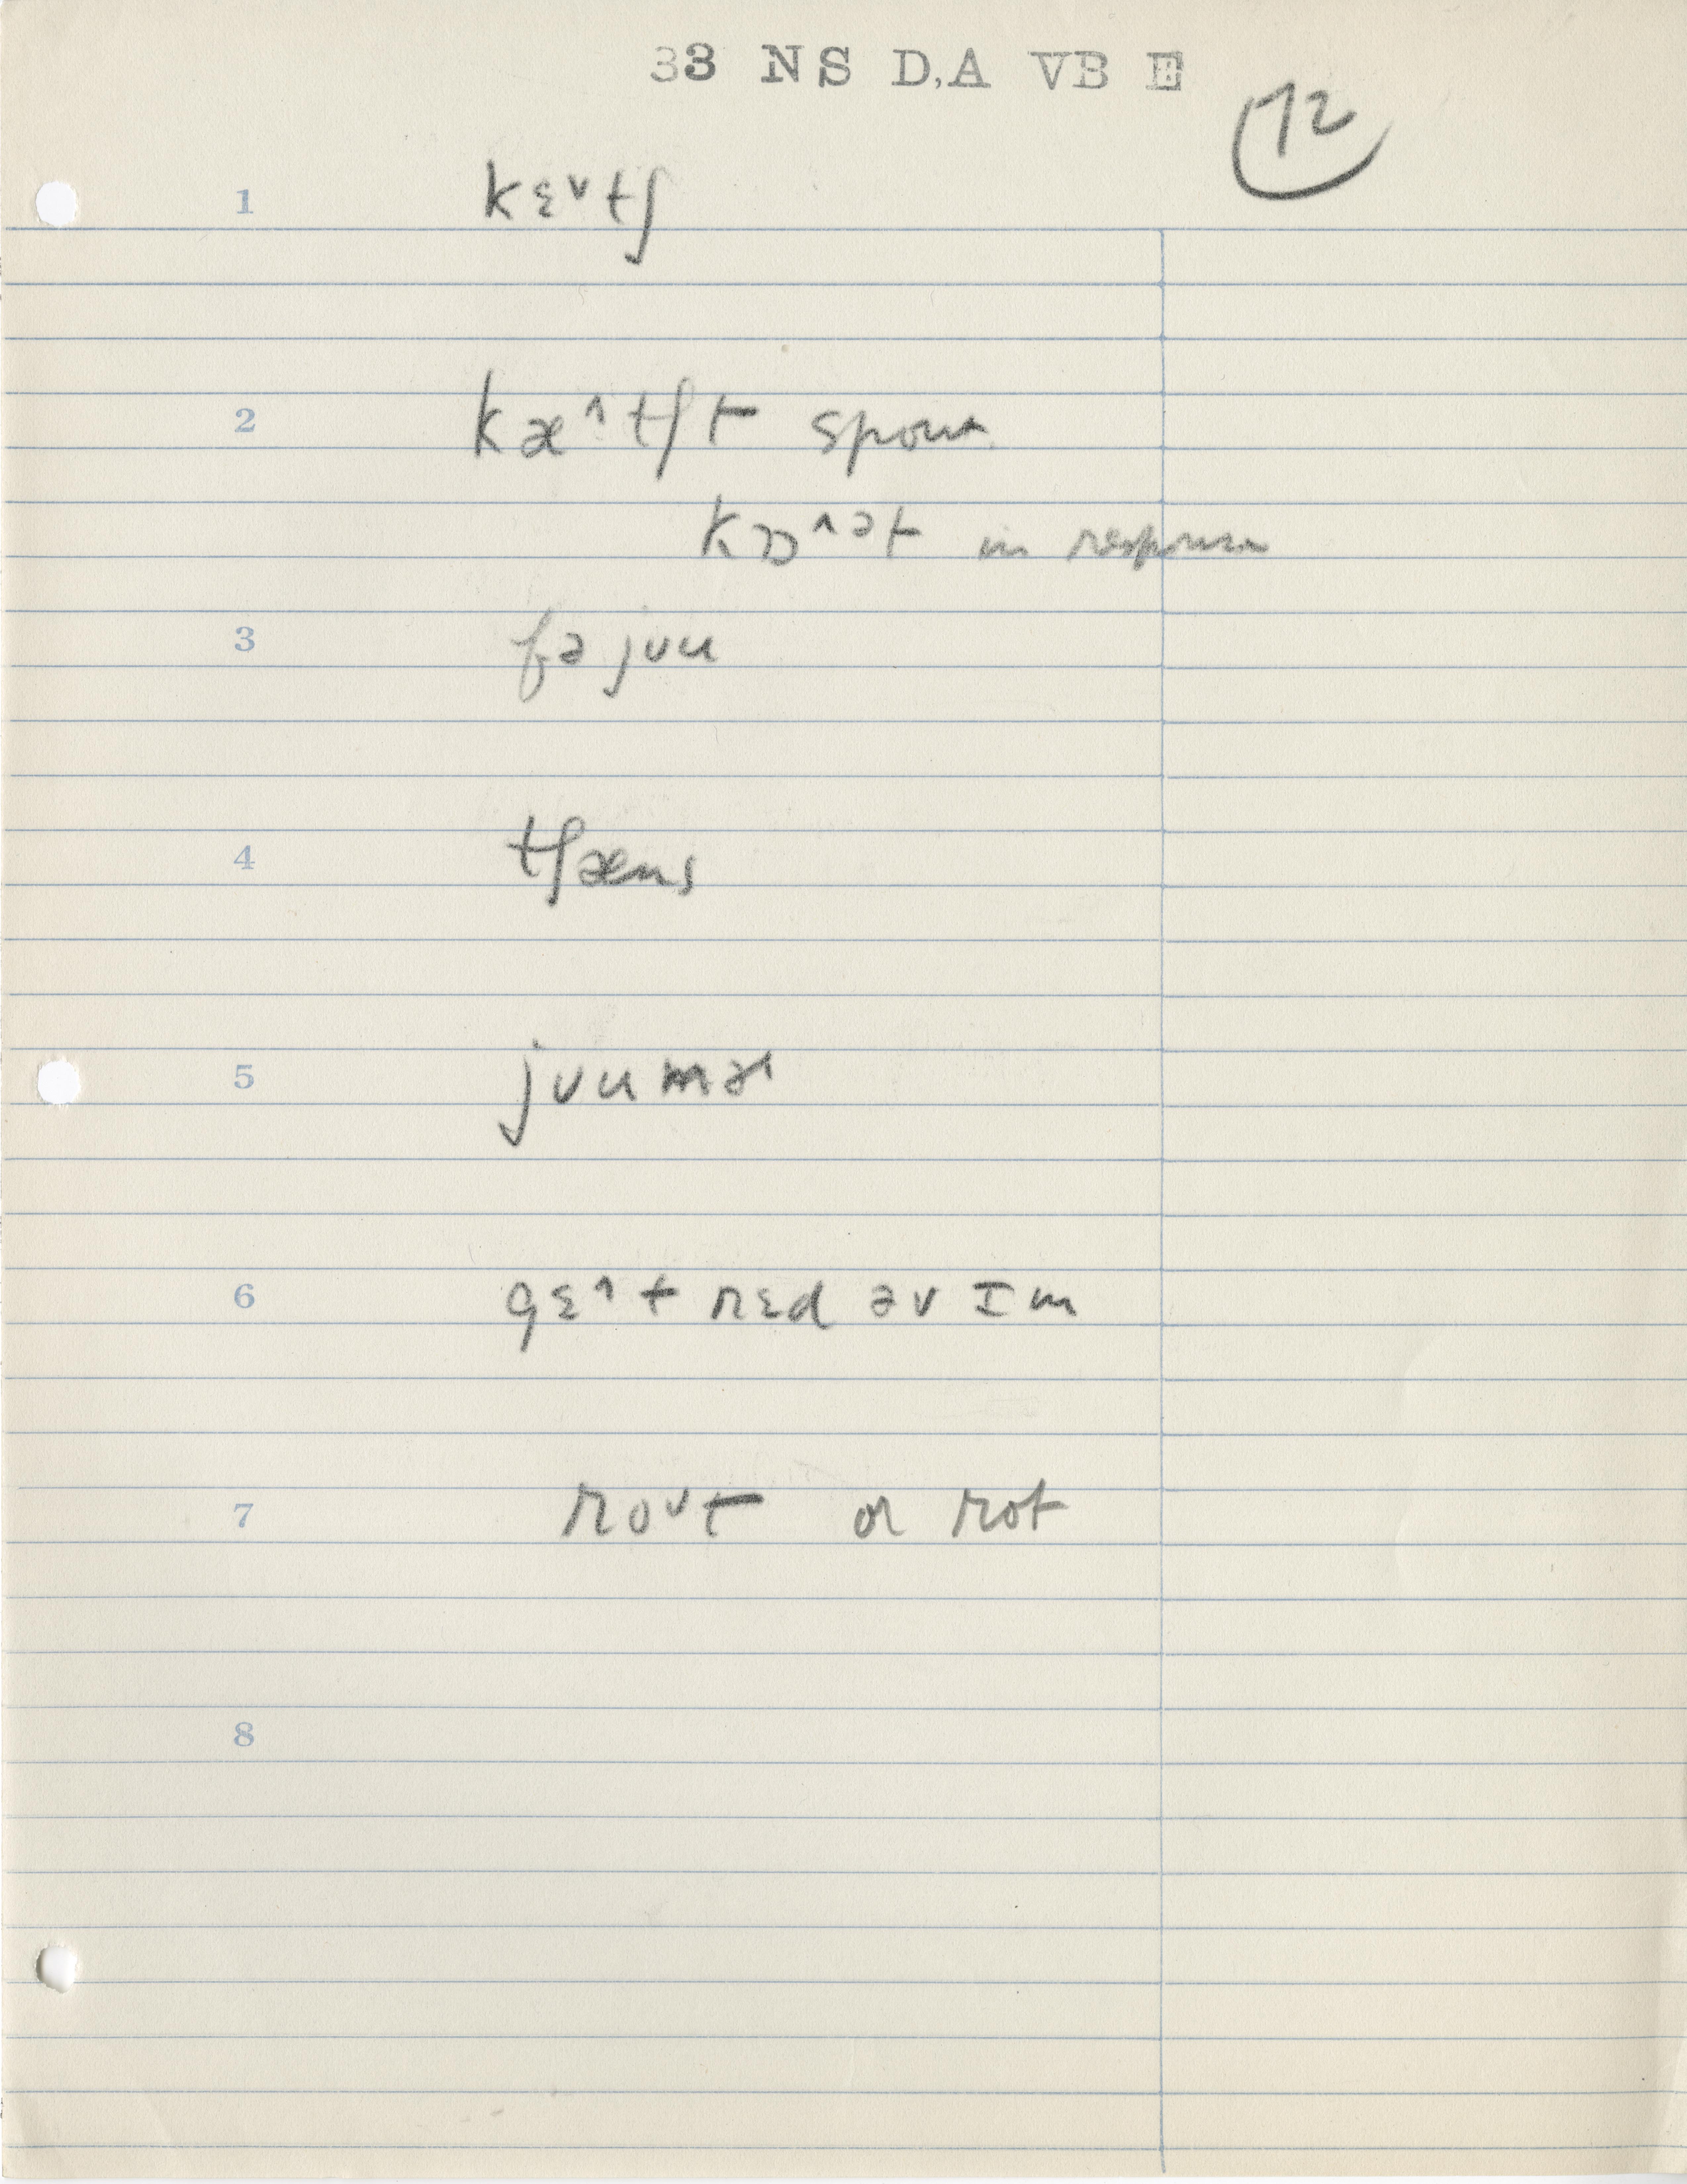 33 NS D,A VB E
72
1 kɛ˅tʃ
2 kæ˄tʃt spont
kɒ˄ət in response
3 fə juu
4 tʃæns
5 jʊumɚ
6 gɛ˄t rɛd əv ɪm
7 ro˅t or rot
8